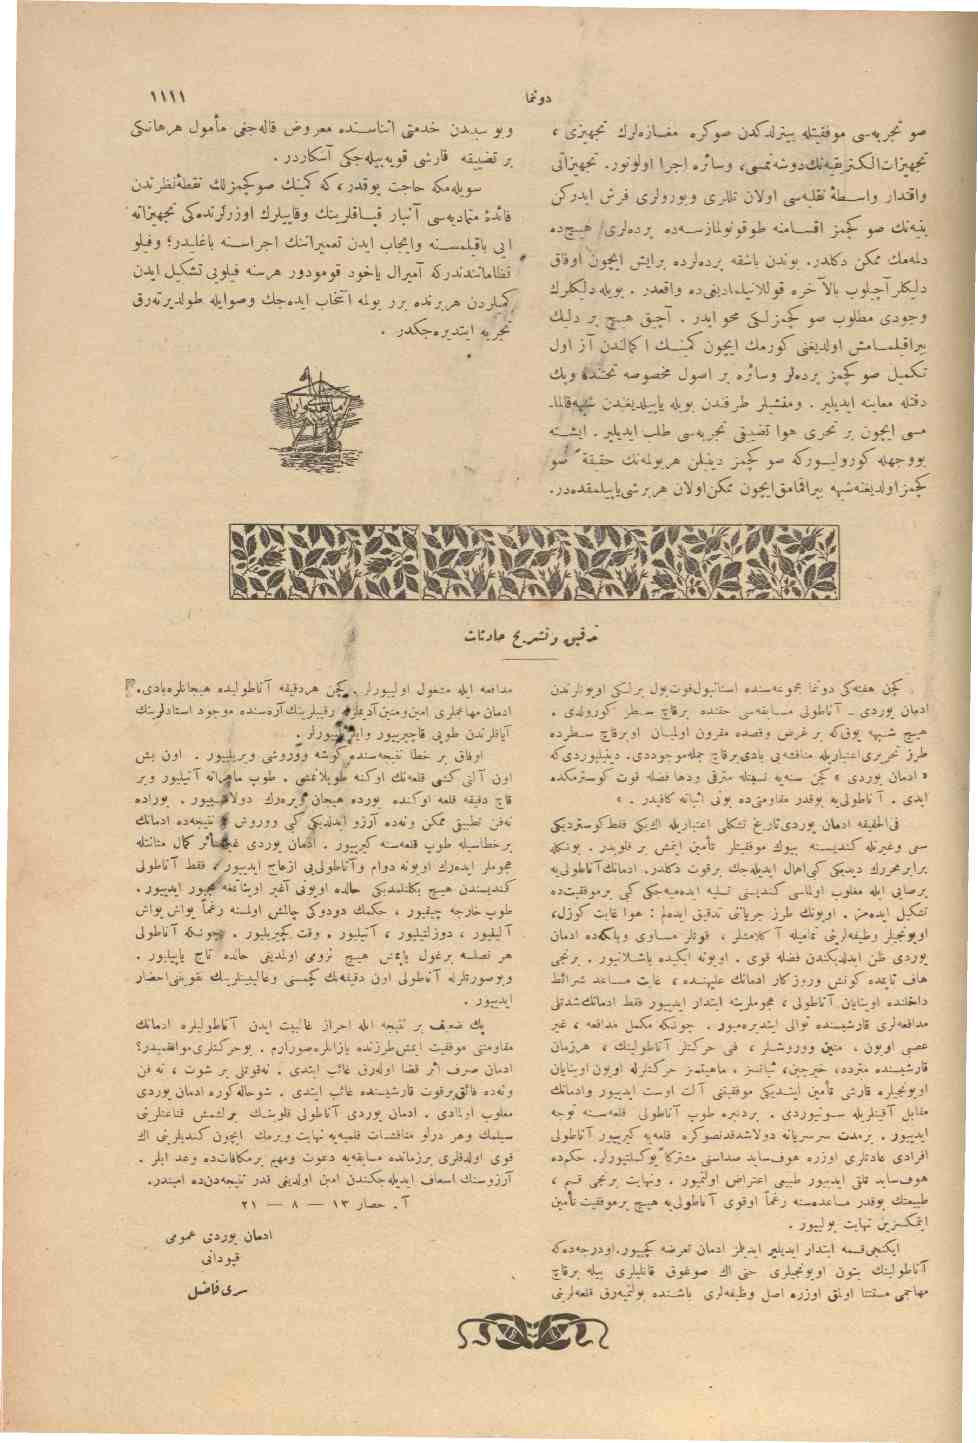 دوننما
١١١١
صو تجربه‌سی موفقیتله بیتیرلدكدن صوكره مغازه‌لرك تجهیزی ،
تجهیزات الكتریقیه‌نك دوشه‌نمسی، وسائره اجرا اولونور. تجهیزاتی
واقتدار واسطهٔ نقلیه‌سی اولان تللری وبورولری فرش ایدركن
بنیه‌نك صو كچمز اقسامنه طوقونولمازسه‌ده پرده‌لری هیچ‌ده
دلمه‌مك ممكن دكلدر. بوندن باشقه پرده‌لرده برایش ایچون اوفاق
دلیكلر آچیلوب بالآخره قوللانیلمادیغی‌ده واقعدر . بویله دلیكلرك
وجودی مطلوب صو كچمزلكی محو ایدر . آچیق هیچ بر دلیك
بیراقیلمامش اولدیغنی كورمك ایچون كمینك اكمالندن آز اول
تكمیل صو كچمز پرده‌لر وسائره بر اصول مخصوصه تحتنده وپك
دقتله معاینه ایدیلیر . ومفتشلر طرفندن بویله یاپیلدیغندن شبهه قالما-
مسی ایچون بر تحری هوا تضییقی تجربه‌سی طلب ایدیلیر . ایشته
بووجهله كورولیوركه صو كچمز دینیلن هربولمه‌نك حقیقةً صو
كچمز اولدیغنه شبهه بیراقمامق ایچون ممكن اولان هر برشی یاپیلمقده‌در.
وبو سببدن خدمتی اثناسنده معروض قاله‌جغی مأمول هرهانكی
بر تضییقه قارشی قویه‌بیله‌جكی آشكاردر .
سویله‌مكه حاجت یوقدر، كه كمینك صو كچمزلك نقطهٔ نظرندن
فائدهٔ متمادیه‌سی آنبار قپاقلرینك وقاپیلرك اوزرلرنده‌كی تجهیزاته
ایی باقیلمسنه وایجاب ایدن تعمیراتنك اجراسنه باغلیدر؛ وفیلو
نظاماتندندركه آمیرال یاخود قومودور هرسنه فیلویی تشكیل ایدن
كمیلردن هربرنده برر بولمه انتخاب ایده‌جك وصوایله طولدیرته‌رق
تجربه ایتدیره‌جكدر .
مابعدی وار
تدقیق وتشریح حادثات
كچن هفته‌كی دوننما مجموعه‌سنده استانبول فوتبول برلكی اویونلرندن
ادمان یوردی ــ آناطولی مسابقه‌سی حقنده برقاچ سطر كورولدی .
هیچ شبهه یوق‌كه بر غرض وقصده مقرون اولمیان اوبرقاچ سطرده
طرز تحریری اعتباریله مناقشه‌یی بادی برقاچ جمله موجوددی. دینیلیوردی‌كه
« ادمان یوردی » كچن سنه‌یه نسبتله مترقی ودها فضله قوت كوسترمكده
ایدی . آناطولی‌یه بوقدر مقاومتی‌ده بونی اثباته كافیدر . »
فی‌الحقیقه ادمان یوردی تاریخ تشكلی اعتباریله اك یكی فقط كوستردیكی
سعی وغیرتله كندیسنه بیوك موفقیتلر تأمین ایتمش بر قلوبدر . بونكله
برابر محررك دیدیكی كبی اهمال ایدیله‌جك برقوت دكلدر. ادمانك آناطولی‌یه
برصایی ایله مغلوب اولماسی كندیسنی تسلیه ایده‌میه‌جكی كبی برموفقیت‌ده
تشكیل ایده‌مز . اویونك طرز جریاننی تدقیق ایده‌لم : هوا غایت كوزل،
اویونجیلر وظیفه‌لرینی تمامیله آكلامشلر ، قوتلر مساوی وبلكه‌ده ادمان
یوردی ظن ایدلدیكندن فضله قوی . اویونه ایكیده باشلانیور . برنجی
هاف تایمده كونش وروزكار ادمانك علیهنده ، غایت مساعد شرائط
داخلنده اوینایان آناطولی ، هجوملرینه ابتدار ایدییور فقط ادمانك شدتلی
مدافعه‌لری قارشیسنده توالی ایتدیره‌میور . چونكه مكمل مدافعه ، غیر
عصبی اویون ، متین ووروشلر ، فنی حركتلر آناطولینك ، هرزمان
قارشیسنده متردد، خیرچین، ثباتسز ، ماهیتسز حركتلرله اویون اوینایان
اویونجیلره قارشی تأمین ایتدیكی موفقیتنی آلت اوست ایدییور وادمانك
مقابل آقینلریله سونیوردی . بردنبره طوپ آناطولی قلعه‌سنه توجه
ایدییور . برمدت سرسریانه دولاشدقدنصوكره قلعه‌یه كیرییور آناطولی
افرادی عادتلری اوزره هوف‌ساید صداسنی مشتركاً یوكلتیورلر. حكم‌ده
هوف‌ساید تلقی ایدییور طبیعی اعتراض اولنمیور . ونهایت برنجی قسم ،
طبیعتك بوقدر مساعده‌سنه رغماً اوقوی آناطولی‌یه هیچ برموفقیت تأمین
ایتمكسزین نهایت بولییور .
ایكنجی قسمه ابتدار ایدیلیر ایدیلمز ادمان تعرضه كچییور. اودرجه‌ده‌كه
آناطولینك بتون اویونجیلری حتی اك صوغوق قانلیلری بیله برقاچ
مهاجمی مستثنا اولمق اوزره اصل وظیفه‌لری باشنده بولنمیه‌رق قلعه‌لرینی
مدافعه ایله مشغول اولیورلر . كچن هردقیقه آناطولیده هیجانلره بادی.
ادمان مهاجملری امین ومتین آدیملرله رقیبلرینك آره‌سنده موجود استادلرینك
آیاقلرندن طوپی قاچیرییور
اوفاق بر خطا نتیجه‌سنده كوشه ووروشی ویریلییور . اون بش
اون آلتی كشی قلعه‌نك اوكنه طوپلانمشی . طوپ ماهرانه آتیلیور وبر
قاچ دقیقه قلعه اوكنده یورده هیجان ویره‌رك دولاشییور . بوراده
نه‌فن تطبیقی ممكن ونه‌ده آرزو ایدلدیكی كبی ووروش نتیجه‌ده ادمانك
برخطاسیله طوپ قلعه‌سنه كیرییور . ادمان یوردی غیر متأثر كمال متانتله
هجوملر ایده‌رك اویونه دوام وآناطولی‌یی ازعاج ایدییور، فقط آناطولی
كندیسندن هیچ بكلنلمدیكی حالده اویونی آغیر اویناتمغه مجبور ایدییور.
طوپ خارجه چیقیور ، حكمك دودوكی چالمش اولسنه رغماً یواش یواش
آلیقیور ، دوزلتیلیور ، آتیلیور . وقت كچیریلیور . چونكه آناطولی
هر نصلسه برغول یاپمش هیچ لزومی اولمدیغی حالده تاچ یاپیلیور .
وبوصورتلرله آناطولی اون دقیقه‌نك كچمسنی وغالبیتلرینك تقویتنی احضار
ایدییور .
پك ضعیف بر نتیجه ایله احراز غالبیت ایدن آناطولیلره ادمانك
مقاومتنی موفقیت ایتمش طرزنده یازانلره صورارم . بوحركتلری موافقمیدر؟
ادمان صرف اثر قضا اوله‌رق غائب ایتدی . نه‌قوتلی بر شوت ، نه فن
ونه‌ده فائق برقوت قارشیسنده غائب ایتدی . شوحاله‌كوره ادمان یوردی
مغلوب اولمادی . ادمان یوردی آناطولی قلوبنك یرلشمش قناعتلرینی
سیلمك وهر درلو مناقشات قلمیه‌یه نهایت ویرمك ایچون كندیلرینی اك
قوی اولدقلری برزمانده مسابقه‌یه دعوت ومهم برمكافات‌ده وعد ایلر .
آرزوسنك اسعاف ایدیله‌جكندن امین اولدیغی قدر نتیجه‌دن‌ده امیندر.
آ . حصار ١٣ — ٨ — ٢١
ادمان یوردی عمومی
قپودانی
سری فاضل